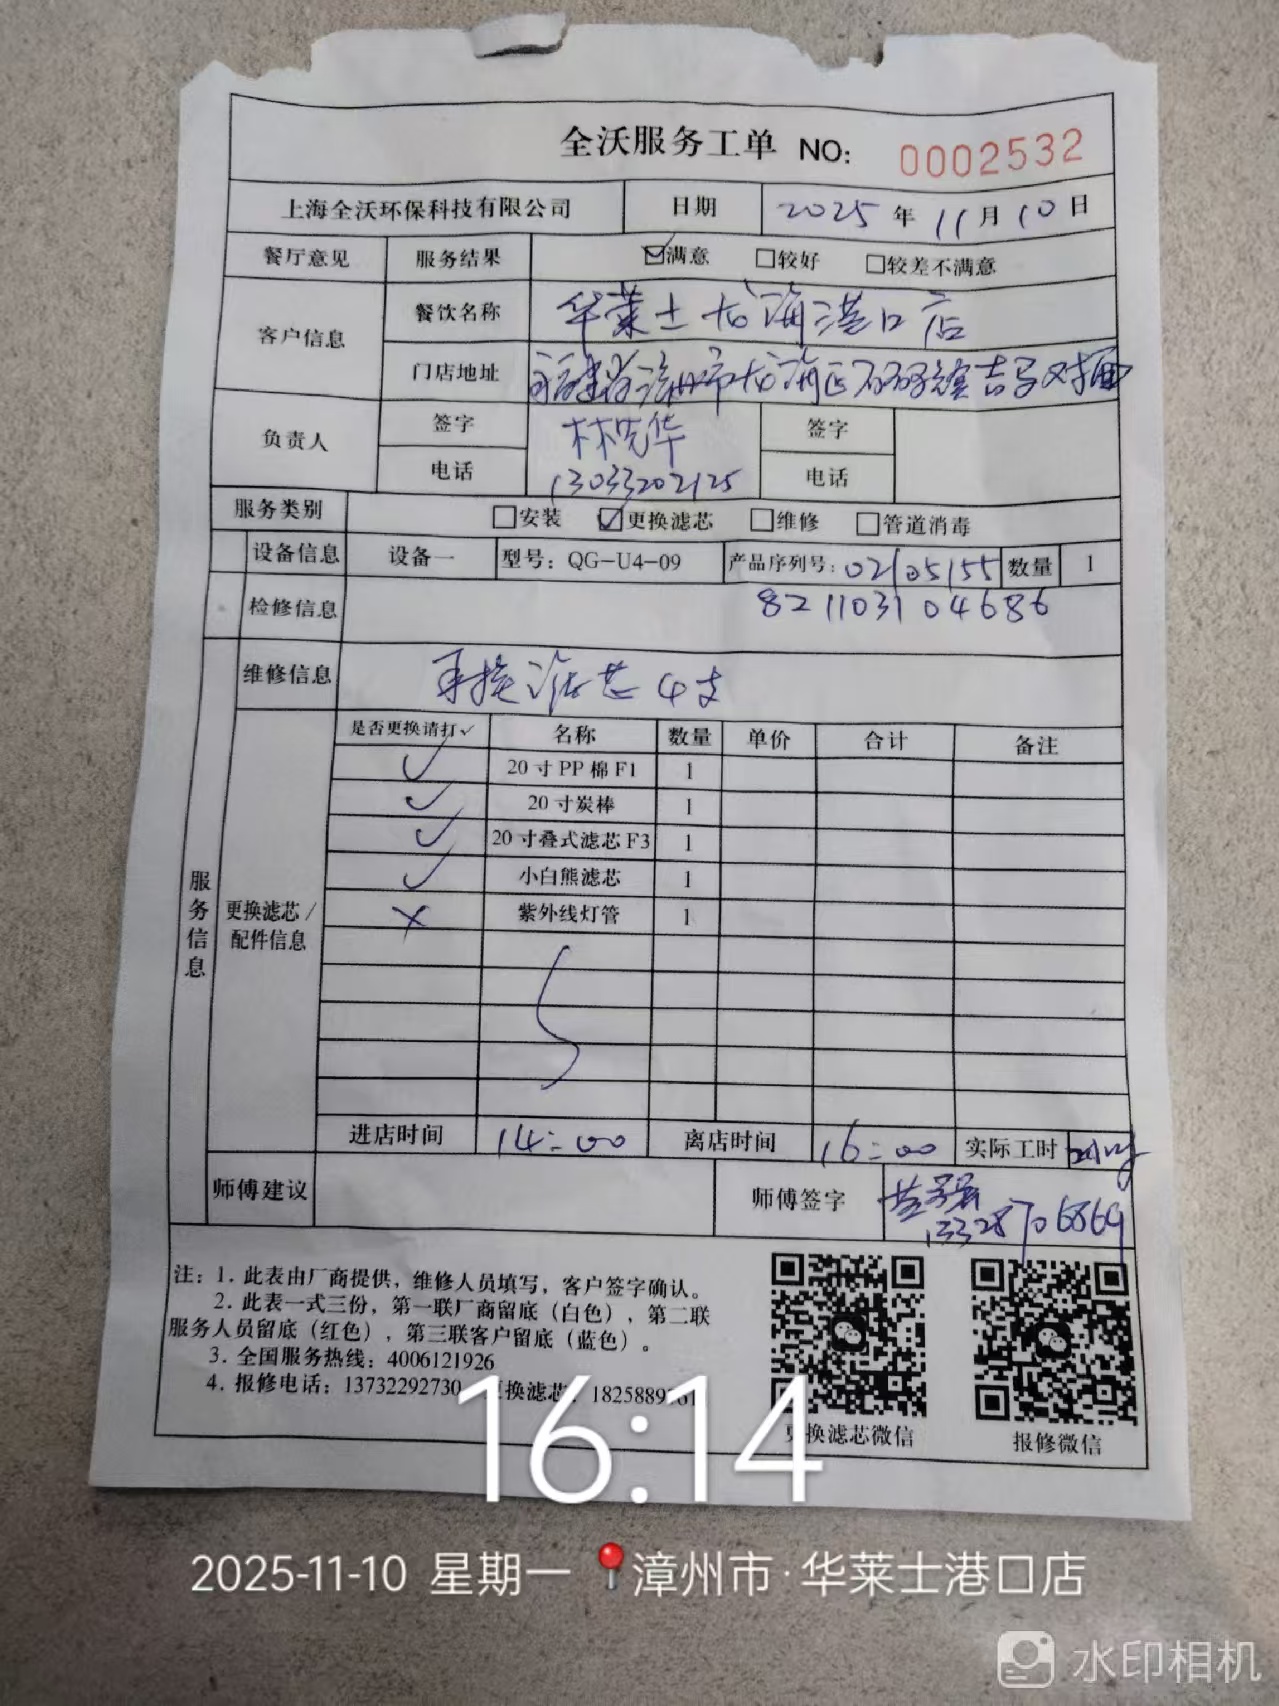 全沃服务工单 NO: 0002532
上海全沃环保科技有限公司 日期 2025 年 11 月 10 日
餐厅意见 服务结果 ☑满意 □较好 □较差不满意
客户信息 餐饮名称 华莱士龙海港口店
门店地址 福建省漳州市龙海区 对面
负责人 签字 林先华 签字
电话 13033202125 电话
服务类别 □安装 ☑更换滤芯 □维修 □管道消毒
设备信息 设备一 型号: QG-U4-09 产品序列号: 02105155 数量 1
检修信息 821103104686
维修信息 更换滤芯4支
服务信息
更换滤芯/配件信息
是否更换请打✓ 名称 数量 单价 合计 备注
✓ 20寸PP棉F1 1
✓ 20寸炭棒 1
✓ 20寸叠式滤芯F3 1
✓ 小白熊滤芯 1
✗ 紫外线灯管 1
进店时间 14:00 离店时间 16:00 实际工时
师傅建议 师傅签字
13328706869
注: 1. 此表由厂商提供，维修人员填写，客户签字确认。
2. 此表一式三份，第一联厂商留底（白色），第二联
服务人员留底（红色），第三联客户留底（蓝色）。
3. 全国服务热线: 4006121926
4. 报修电话: 13732292730 更换滤芯:
更换滤芯微信 报修微信
16:14
2025-11-10 星期一 漳州市·华莱士港口店
水印相机